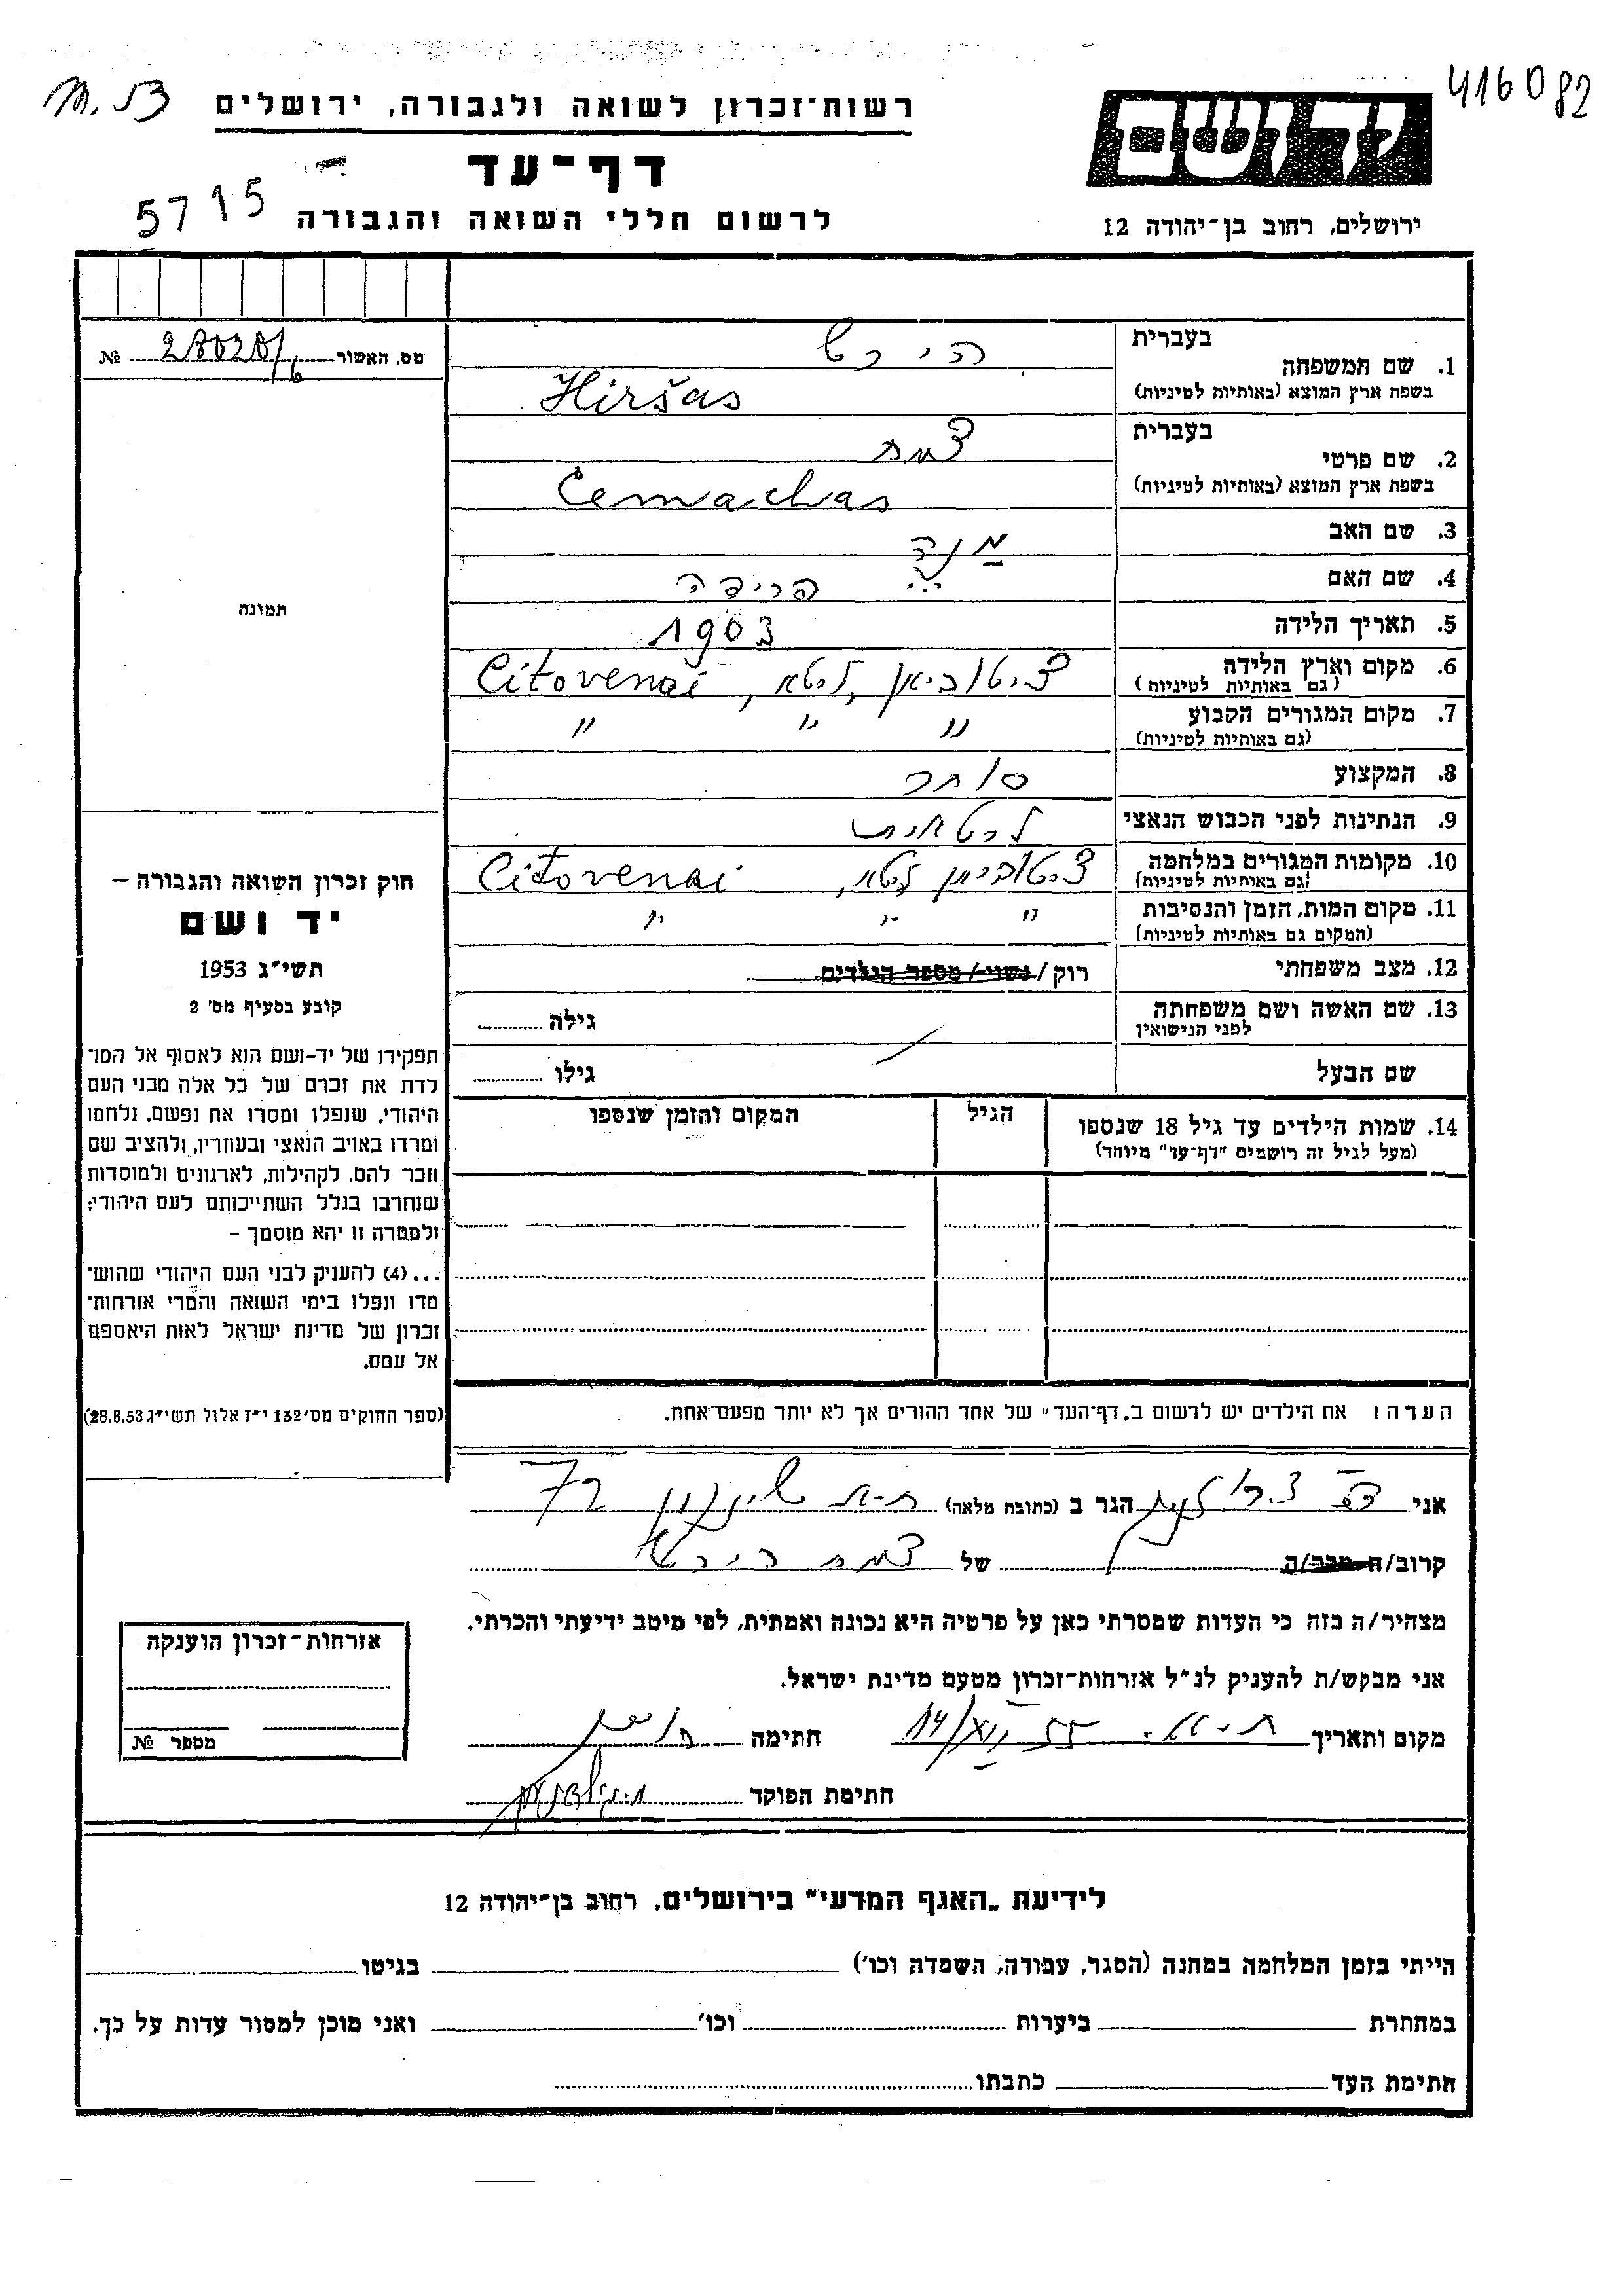 מ. 53
416082
רשות־זכרון לשואה ולגבורה, ירושלים
ידושם
דף־עד
5715
לרשום חללי השואה והגבורה
ירושלים, רחוב בן־יהודה 12
מס. האשור № 28020/6
בעברית
1. שם המשפחה
הירש
בשפת ארץ המוצא (באותיות לטיניות)
Hiršas
בעברית
2. שם פרטי
צמח
בשפת ארץ המוצא (באותיות לטיניות)
Cemachas
3. שם האב
4. שם האם
פרידה
5. תאריך הלידה
1903
6. מקום וארץ הלידה
(גם באותיות לטיניות)
ציטוביאן, ליטא, Citovenai
7. מקום המגורים הקבוע
(גם באותיות לטיניות)
" " "
8. המקצוע
סוחר
9. הנתינות לפני הכבוש הנאצי
ליטאית
10. מקומות המגורים במלחמה
(גם באותיות לטיניות)
ציטוביאן ליטא, Citovenai
11. מקום המות, הזמן והנסיבות
(המקום גם באותיות לטיניות)
" " "
12. מצב משפחתי
רוק / נשוי / מספר הילדים
13. שם האשה ושם משפחתה
לפני הנישואין
גילה
שם הבעל
גילו
14. שמות הילדים עד גיל 18 שנספו
(מעל לגיל זה רושמים "דף־עד" מיוחד)
הגיל
המקום והזמן שנספו
הערה: את הילדים יש לרשום ב„דף־העד" של אחד ההורים אך לא יותר מפעם אחת.
תמונה
חוק זכרון השואה והגבורה –
יד ושם
תשי״ג 1953
קובע בסעיף מס׳ 2
תפקידו של יד-ושם הוא לאסוף אל המו־
לדת את זכרם של כל אלה מבני העם
היהודי, שנפלו ומסרו את נפשם, נלחמו
ומרדו באויב הנאצי ובעוזריו, ולהציב שם
וזכר להם, לקהילות, לארגונים ולמוסדות
שנחרבו בגלל השתייכותם לעם היהודי;
ולמטרה זו יהא מוסמך –
...(4) להעניק לבני העם היהודי שהוש־
מדו ונפלו בימי השואה והמרי אזרחות־
זכרון של מדינת ישראל לאות היאספם
אל עמם.
(ספר החוקים מס׳ 132 י״ז אלול תשי״ג 28.8.53)
אני הגר ב (כתובת מלאה) ת-א 72
קרוב/ה מכר/ה של צמח הירש
מצהיר/ה בזה כי העדות שמסרתי כאן על פרטיה היא נכונה ואמתית, לפי מיטב ידיעתי והכרתי.
אני מבקש/ת להעניק לנ״ל אזרחות־זכרון מטעם מדינת ישראל.
מקום ותאריך ת-א. 14/ 55 חתימה
חתימת הפוקד
אזרחות־זכרון הוענקה
מספר №
לידיעת „האגף המדעי" בירושלים, רחוב בן־יהודה 12
הייתי בזמן המלחמה במחנה (הסגר, עבודה, השמדה וכו׳) בגיטו
במחתרת ביערות וכו׳ ואני מוכן למסור עדות על כך.
חתימת העד כתבתו